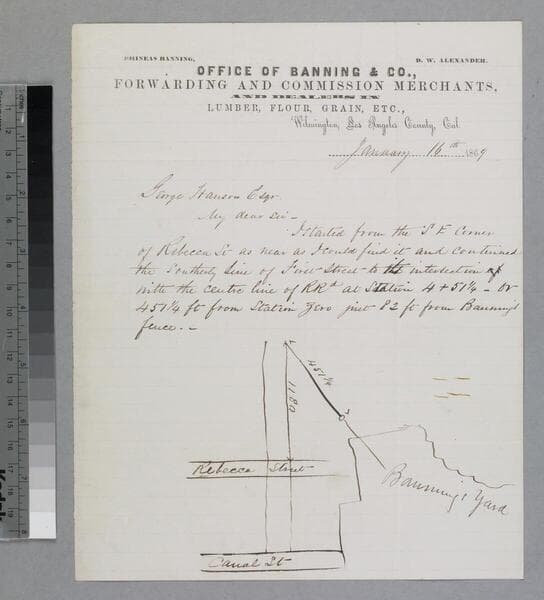 PHINEAS BANNING,
D. W. ALEXANDER.
OFFICE OF BANNING & CO.,
FORWARDING AND COMMISSION MERCHANTS,
AND DEALERS IN
LUMBER, FLOUR, GRAIN, ETC.,
Wilmington, Los Angeles County, Cal.
January 16th 1869
George Hanson Esqr
My dear Sir -
I started from the S F Corner
of Rebecca St as near as I could find it and continued
the Southerly line of First Street to the intersection of
with the centre line of RRd at Station 4+51¼ - or
451¼ ft from Station Zero just 82 ft from Banning's
fence. -
451¼
1180
Rebecca Street
Banning's Yard
Canal St